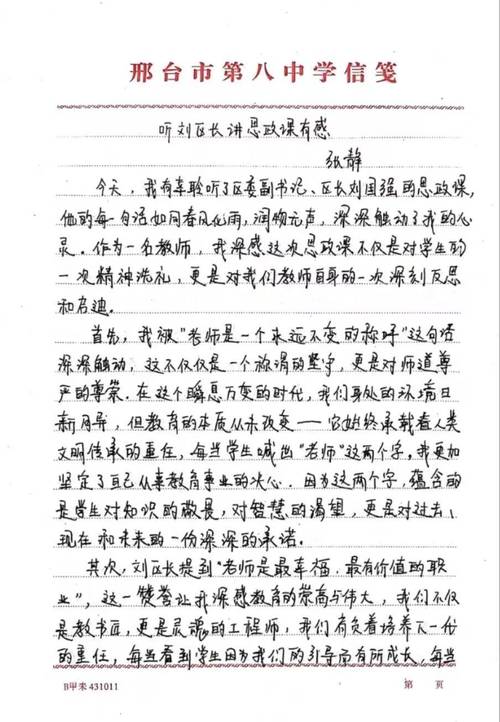 邢台市第八中学信笺
听刘区长讲思政课有感
张静
今天，我有幸聆听了区委副书记、区长刘国强的思政课，
他的每一句话如同春风化雨，润物无声，深深触动了我的心
灵。作为一名教师，我深感这次思政课不仅是对学生的
一次精神洗礼，更是对我们教师自身的一次深刻反思
和启迪.
首先，我被"老师是一个永远不变的称呼"这句话
深深触动，这不仅仅是一个称谓的坚守，更是对师道尊
严的尊崇.在这个瞬息万变的时代，我们身处的环境日
新月异，但教育的本质从未改变——它始终承载着人类
文明传承的重任，每当学生喊出"老师"这两个字，我更加
坚定了自己从事教育事业的决心.因为这两个字，蕴含的
是学生对知识的敬畏，对智慧的渴望，更是对过去、
现在和未来的一份深深的承诺.
其次，刘区长提到"老师是最幸福，最有价值的职
业"，这一赞誉让我深感教育的崇高与伟大，我们不仅
是教书匠，更是灵魂的工程师，我们肩负着培养下一代
的重任，每当看到学生因为我们的引导而有所成长，每当
B甲未431011
第 页